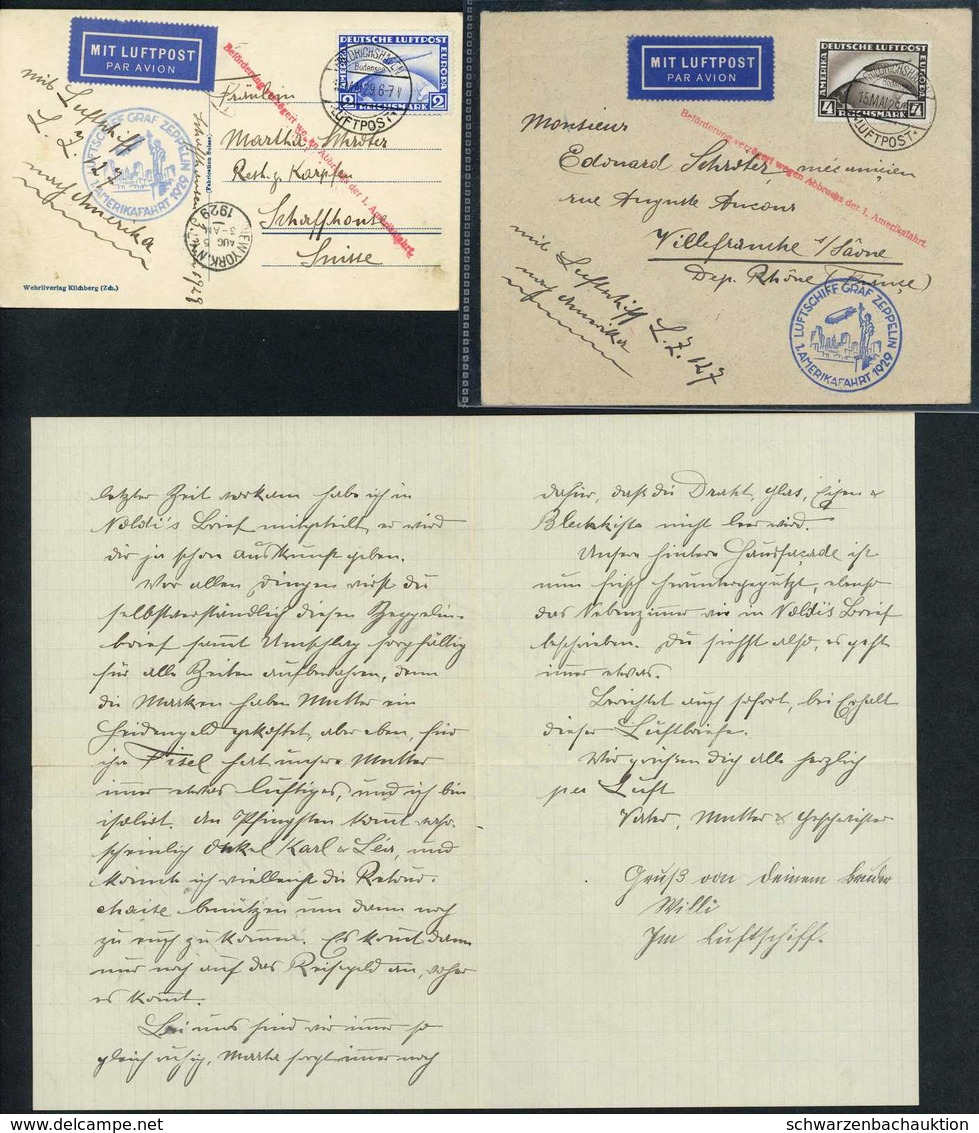 MIT LUFTPOST
PAR AVION
Beförderung verzögert wegen Abbruchs der 1. Amerikafahrt.
DEUTSCHE LUFTPOST
EUROPA
AMERIKA
2 REICHSMARK 2
FRIEDRICHSHAFEN
Bodensee
LUFTPOST
mit Luftschiff
L. Z. 127
nach Amerika
LUFTSCHIFF GRAF ZEPPELIN
1. AMERIKAFAHRT 1929
Fräulein
Martha Schröter
Rest. z. Karpfen
Schaffhouse
Suisse
NEW YORK, N.Y.
AUG 5
3-AM
1929
Wehrliverlag Kilchberg (Zch.)
MIT LUFTPOST
PAR AVION
Beförderung verzögert wegen Abbruchs der 1. Amerikafahrt.
DEUTSCHE LUFTPOST
EUROPA
AMERIKA
4 REICHSMARK 4
FRIEDRICHSHAFEN
15 MAI 29
LUFTPOST
Monsieur
Edouard Schröter, mécanicien
rue Auguste Aucour
Villefranche s/Sâone
Dep. Rhône (France)
mit Luftschiff L. Z. 127
nach Amerika
LUFTSCHIFF GRAF ZEPPELIN
1. AMERIKAFAHRT 1929
letzter Zeit vorkam habe ich in
Noldi's Brief mitgeteilt, er wird
dir ja schon Auskunft geben.
Vor allen Dingen wirst du
selbstverständlich diesen Zeppelin-
brief samt Umschlag sorgfältig
für alle Zeiten aufbewahren, denn
die Marken haben Mutter ein
Heidengeld gekostet, aber eben, für
ihr Fisel hat unsere Mutter
immer etwas luftiges, und ich bin
isoliert. An Pfingsten kommt wahr-
scheinlich Onkel Karl & Lea, und
könnte ich vielleicht die Retour-
chaise benützen um dann noch
zu euch zu kommen. Es kommt dann
nur noch auf das Reisegeld an, woher
es kommt.
Bei uns sind wir immer so
gleich ruhig, Martha sorgt immer noch
dafür, daß die Draht, Glas, Eisen &
Blechkiste nicht leer wird.
Unsere hintere Hausfaçade ist
nun frisch heruntergeputzt, ebenso
das Nebenzimmer wie in Noldis Brief
beschrieben. Du siehst also, es geht
immer etwas.
Berichtet auch sofort, bei Erhalt
dieser Luftbriefe.
Wir grüssen dich alle herzlich
per Luft
Vater, Mutter & Geschwister
Gruß von deinem Bruder
Willi
Im Luftschiff.
www.delcampe.net
schwarzenbachauktion